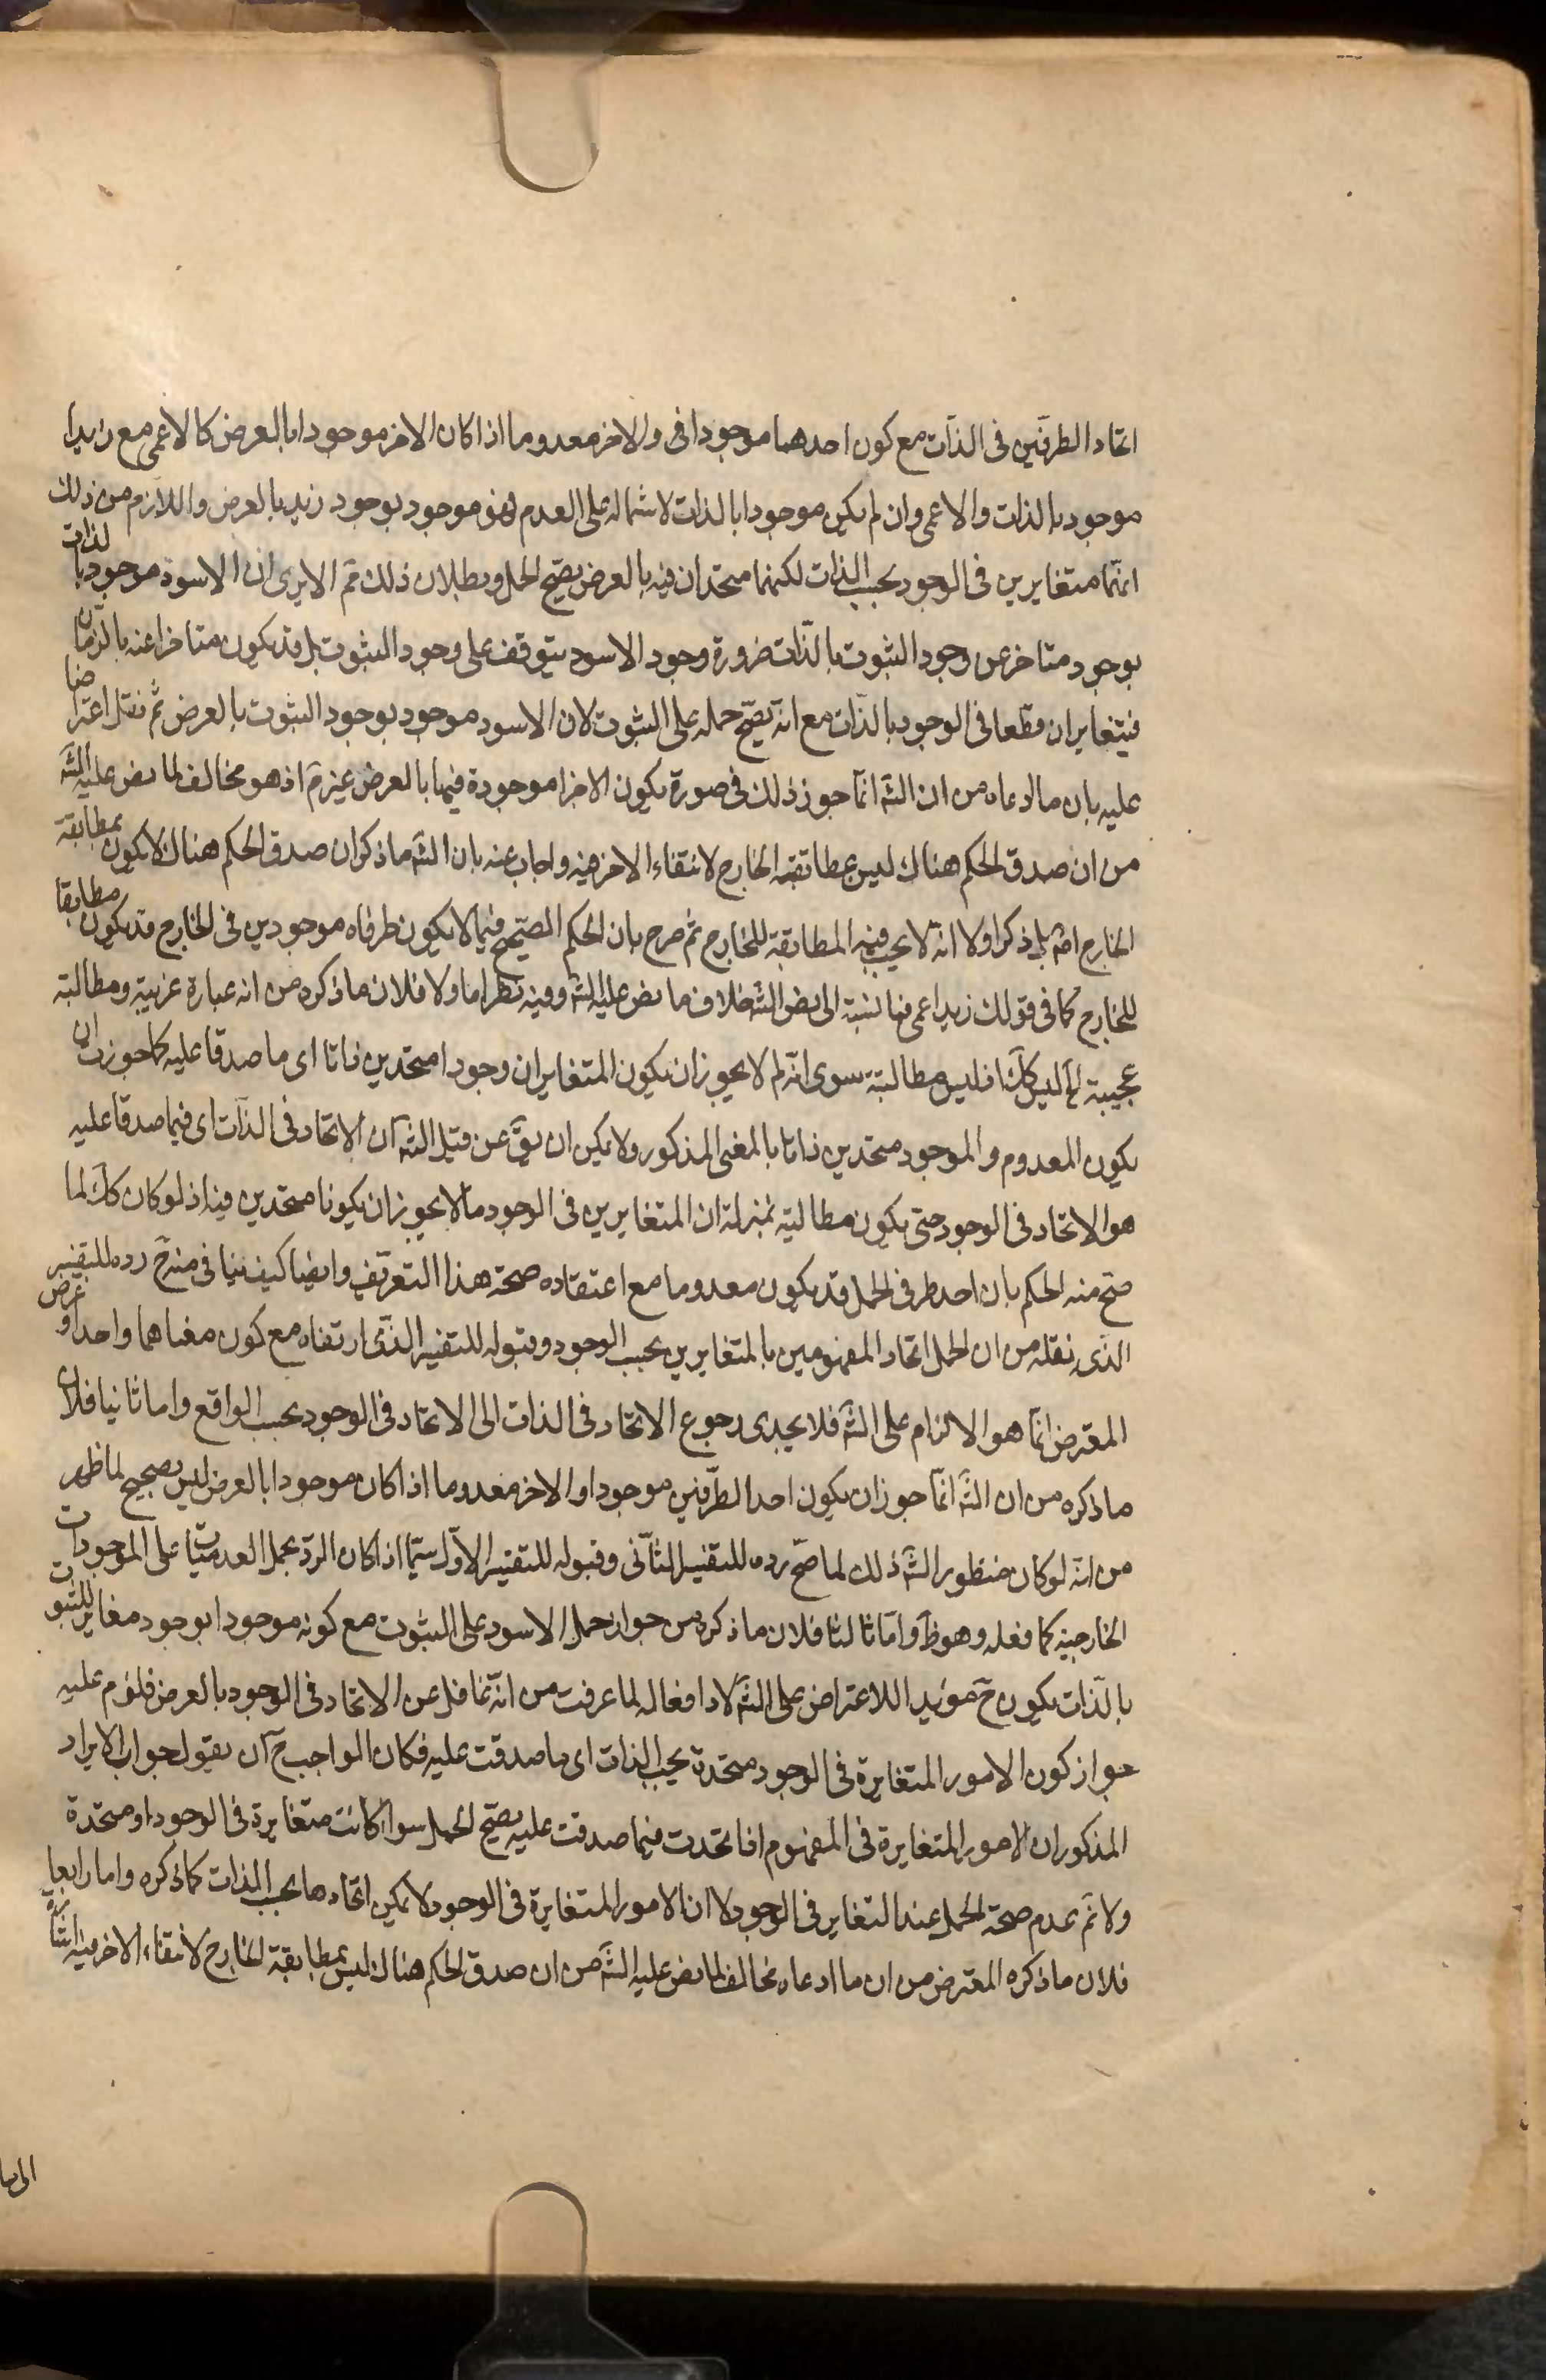 اتحاد الطرفين فى الذات مع كون احدهما موجودا فى والاخر معدوما اذا كان الاخر موجودا بالعرض كالاعمى مع زيد ا
موجود بالذات والاعمى وان لم يكن موجودا بالذات لاشتماله على العدم لهو موجود بوجود زيد بالعرض واللازم من ذلك
انهما متغايرين فى الوجود بحسب الذات لكنهما متحدان فيه بالعرض يصح الحمل وبطلان ذلك مم الا يرى ان الاسود موجود بالذات
بوجود متاخر عن وجود الثبوت بالذات ضرورة وجود الاسود يتوقف على وجود الثبوت بل قد يكون متاخرا عنه بالزمان
فيتغايران قطعا فى الوجود بالذات مع انه يصح حمله على الثبوت لان الاسود موجود بوجود الثبوت بالعرض ثم نقل اعتراضا
عليه بان ما ادعاه من ان الشه انما جوز ذلك فى صورة يكون الاخر موجودة فيها بالعرض غيرم اذ هو مخالف لما نص عليه الشه
من ان صدق الحكم هناك ليس بمطابقة الخارج لانتفاء الاخر فيه واجاب عنه بان الشه ما ذكر ان صدق الحكم هناك لا يكون بمطابقة
الخارج اصم بل ذكر اولا انه لا يجب فيه المطابقة للخارج ثم صرح بان الحكم الصحيح فيما لا يكون طرفاه موجودين فى الخارج قد يكون مطابقا
للخارج كما فى قولك زيد اعمى فما نسبة الى نص الشه خلاف ما نص عليه الشه وفيه نظر اما اولا فلان ما ذكره من انه عبارة غريبة ومطالبة
عجيبة لخ ليس كك اذ ليس مطالبته سوى انه لم لا يجوز ان يكون المتغايران وجودا متحدين ذاتا اى ما صدقا عليه كما جوزت ان
يكون المعدوم والموجود متحدين ذاتا بالمعنى المذكور ولا يمكن ان يق عن قبل الشه ان الاتحاد فى الذات اى فيما صدقا عليه
هو الاتحاد فى الوجود حتى يكون مطالبته بمنزلة ان المتغايرين فى الوجود لم لا يجوز ان يكونا متحدين فيه اذ لو كان كك لما
صح منه الحكم بان احد طرفى الحمل قد يكون معدوما مع اعتقاده صحة هذا التعريف وايضا كيف ينافى منه ح رده للتفسير
الذى نقله من ان الحمل اتحاد المفهومين بالمتغايرين بحسب الوجود وقبوله للتفسير الذى ارتضاه مع كون معناهما واحدا وغرض
المعترض انما هو الالزام على الشه فلا يجدى رجوع الاتحاد فى الذات الى الاتحاد فى الوجود بحسب الواقع واما ثانيا فلان
ما ذكره من ان الشه انما جوز ان يكون احد الطرفين موجودا والاخر معدوما اذا كان موجودا بالعرض ليس بصحيح لما ظهر
من انه لو كان منظور الشه ذلك لما صح رده للتفسير الثانى وقبوله للتفسير الاول سيما اذا كان الرد بحمل العدميات على الموجودات
الخارجية كما فعله وهو ظ واما ثالثا فلان ما ذكره من جواز حمل الاسود على الثبوت مع كونه موجودا بوجود مغاير للثبوت
بالذات يكون ح مؤيدا للاعتراض على الشه لا دافعا له لما عرفت من انه غافل عن الاتحاد فى الوجود بالعرض فلزم عليه
جواز كون الامور المتغايرة فى الوجود متحدة بحسب الذات اى ما صدقت عليه فكان الواجب ح ان يقول جواب الايراد
المذكور ان الامور المتغايرة فى المفهوم اذا اتحدت فيما صدقت عليه يصح الحمل سواء كانت متغايرة فى الوجود او متحدة
ولا نم عدم صحة الحمل عند التغاير فى الوجود لا ان الامور المتغايرة فى الوجود لا يمكن اتحادها بحسب الذات كما ذكره واما رابعا
فلان ما ذكره المعترض من ان ما ادعاه مخالف لما نص عليه الشه من ان صدق الحكم هناك ليس بمطابقة الخارج لانتفاء الاخر فيه